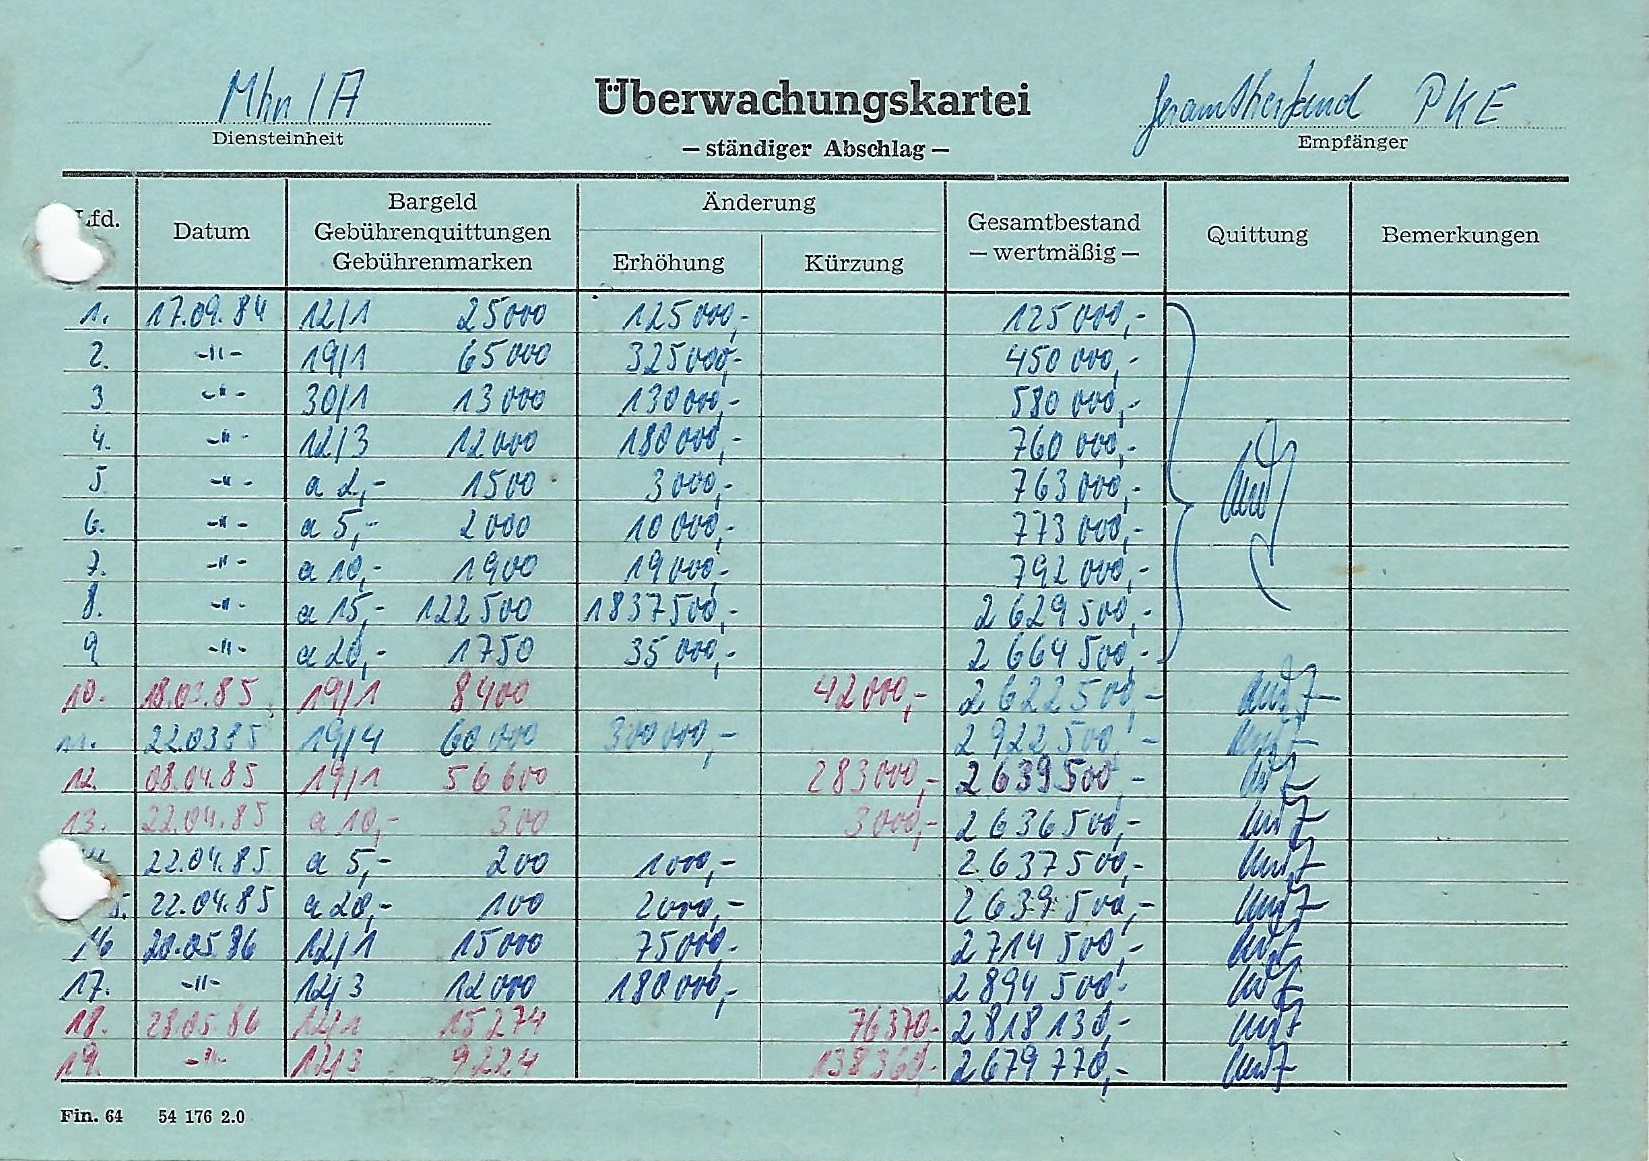 Mhn/A
Überwachungskartei
Gesamtbestand PKE
Diensteinheit
— ständiger Abschlag —
Empfänger
Lfd.
Datum
Bargeld
Gebührenquittungen
Gebührenmarken
Änderung
Erhöhung
Kürzung
Gesamtbestand
— wertmäßig —
Quittung
Bemerkungen
1. 17.09.84 12/1 25000 125000,- 125 000,-
2. -"- 19/1 65000 325000,- 450 000,-
3 -"- 30/1 13000 130000,- 580 000,-
4. -"- 12/3 12000 180000,- 760 000,-
5 -"- a 2,- 1500 3000,- 763 000,-
6. -"- a 5,- 2000 10000,- 773 000,-
7. -"- a 10,- 1900 19000,- 792 000,-
8. -"- a 15,- 122500 1837500,- 2 629 500,-
9 -"- a 20,- 1750 35000,- 2 664 500,-
10. 18.03.85 19/1 8400 42000,- 2 622 500,-
11. 22.03.85 19/4 60000 300000,- 2 922 500,-
12. 08.04.85 19/1 56600 283000,- 2 639 500,-
13. 22.04.85 a 10,- 300 3000,- 2 636 500,-
22.04.85 a 5,- 200 1000,- 2.637 500,-
5. 22.04.85 a 20,- 100 2000,- 2 639 500,-
16 20.05.86 12/1 15000 75000,- 2 714 500,-
17. -"- 12/3 12000 180000,- 2 894 500,-
18. 28.05.86 12/1 15274 76370,- 2 818 130,-
19. -"- 12/3 9224 138360,- 2 679 770,-
Fin. 64 54 176 2.0